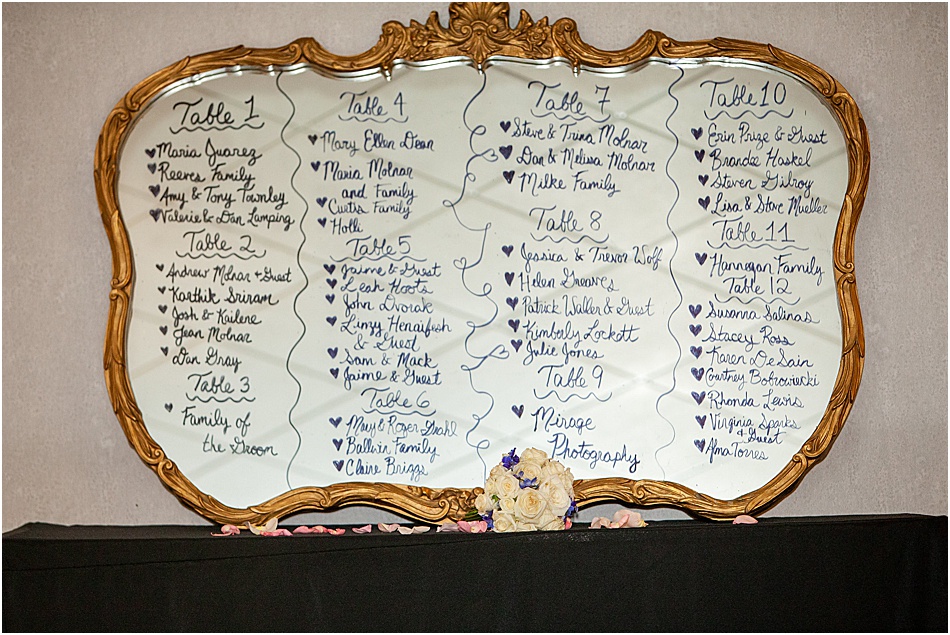 Table 1
Maria Juarez
Reeves Family
Amy & Tony Townley
Valerie & Dan Lamping
Table 2
Andrew Molnar + Guest
Karthik Sriram
Josh & Kailene
Jean Molnar
Dan Gray
Table 3
Family of
the Groom
Table 4
Mary Ellen Dean
Maria Molnar
and Family
Curtis Family
Holli
Table 5
Jaime & Guest
Leah Hoots
John Dvorak
Linzy Henaifesh
& Guest
Sam & Mack
Jaime & Guest
Table 6
Mary & Roger Grahl
Baldwin Family
Claire Briggs
Table 7
Steve & Trina Molnar
Dan & Melissa Molnar
Milke Family
Table 8
Jessica & Trevor Wolf
Helen Greaves
Patrick Waller & Guest
Kimberly Lockett
Julie Jones
Table 9
Mirage
Photography
Table 10
Erin Prize & Guest
Brandee Haskel
Steven Gilroy
Lisa & Steve Mueller
Table 11
Hannegan Family
Table 12
Susanna Salinas
Stacey Ross
Karen DeSain
Courtney Bobrowiecki
Rhonda Lewis
Virginia Sparks
& Guest
Alma Torres